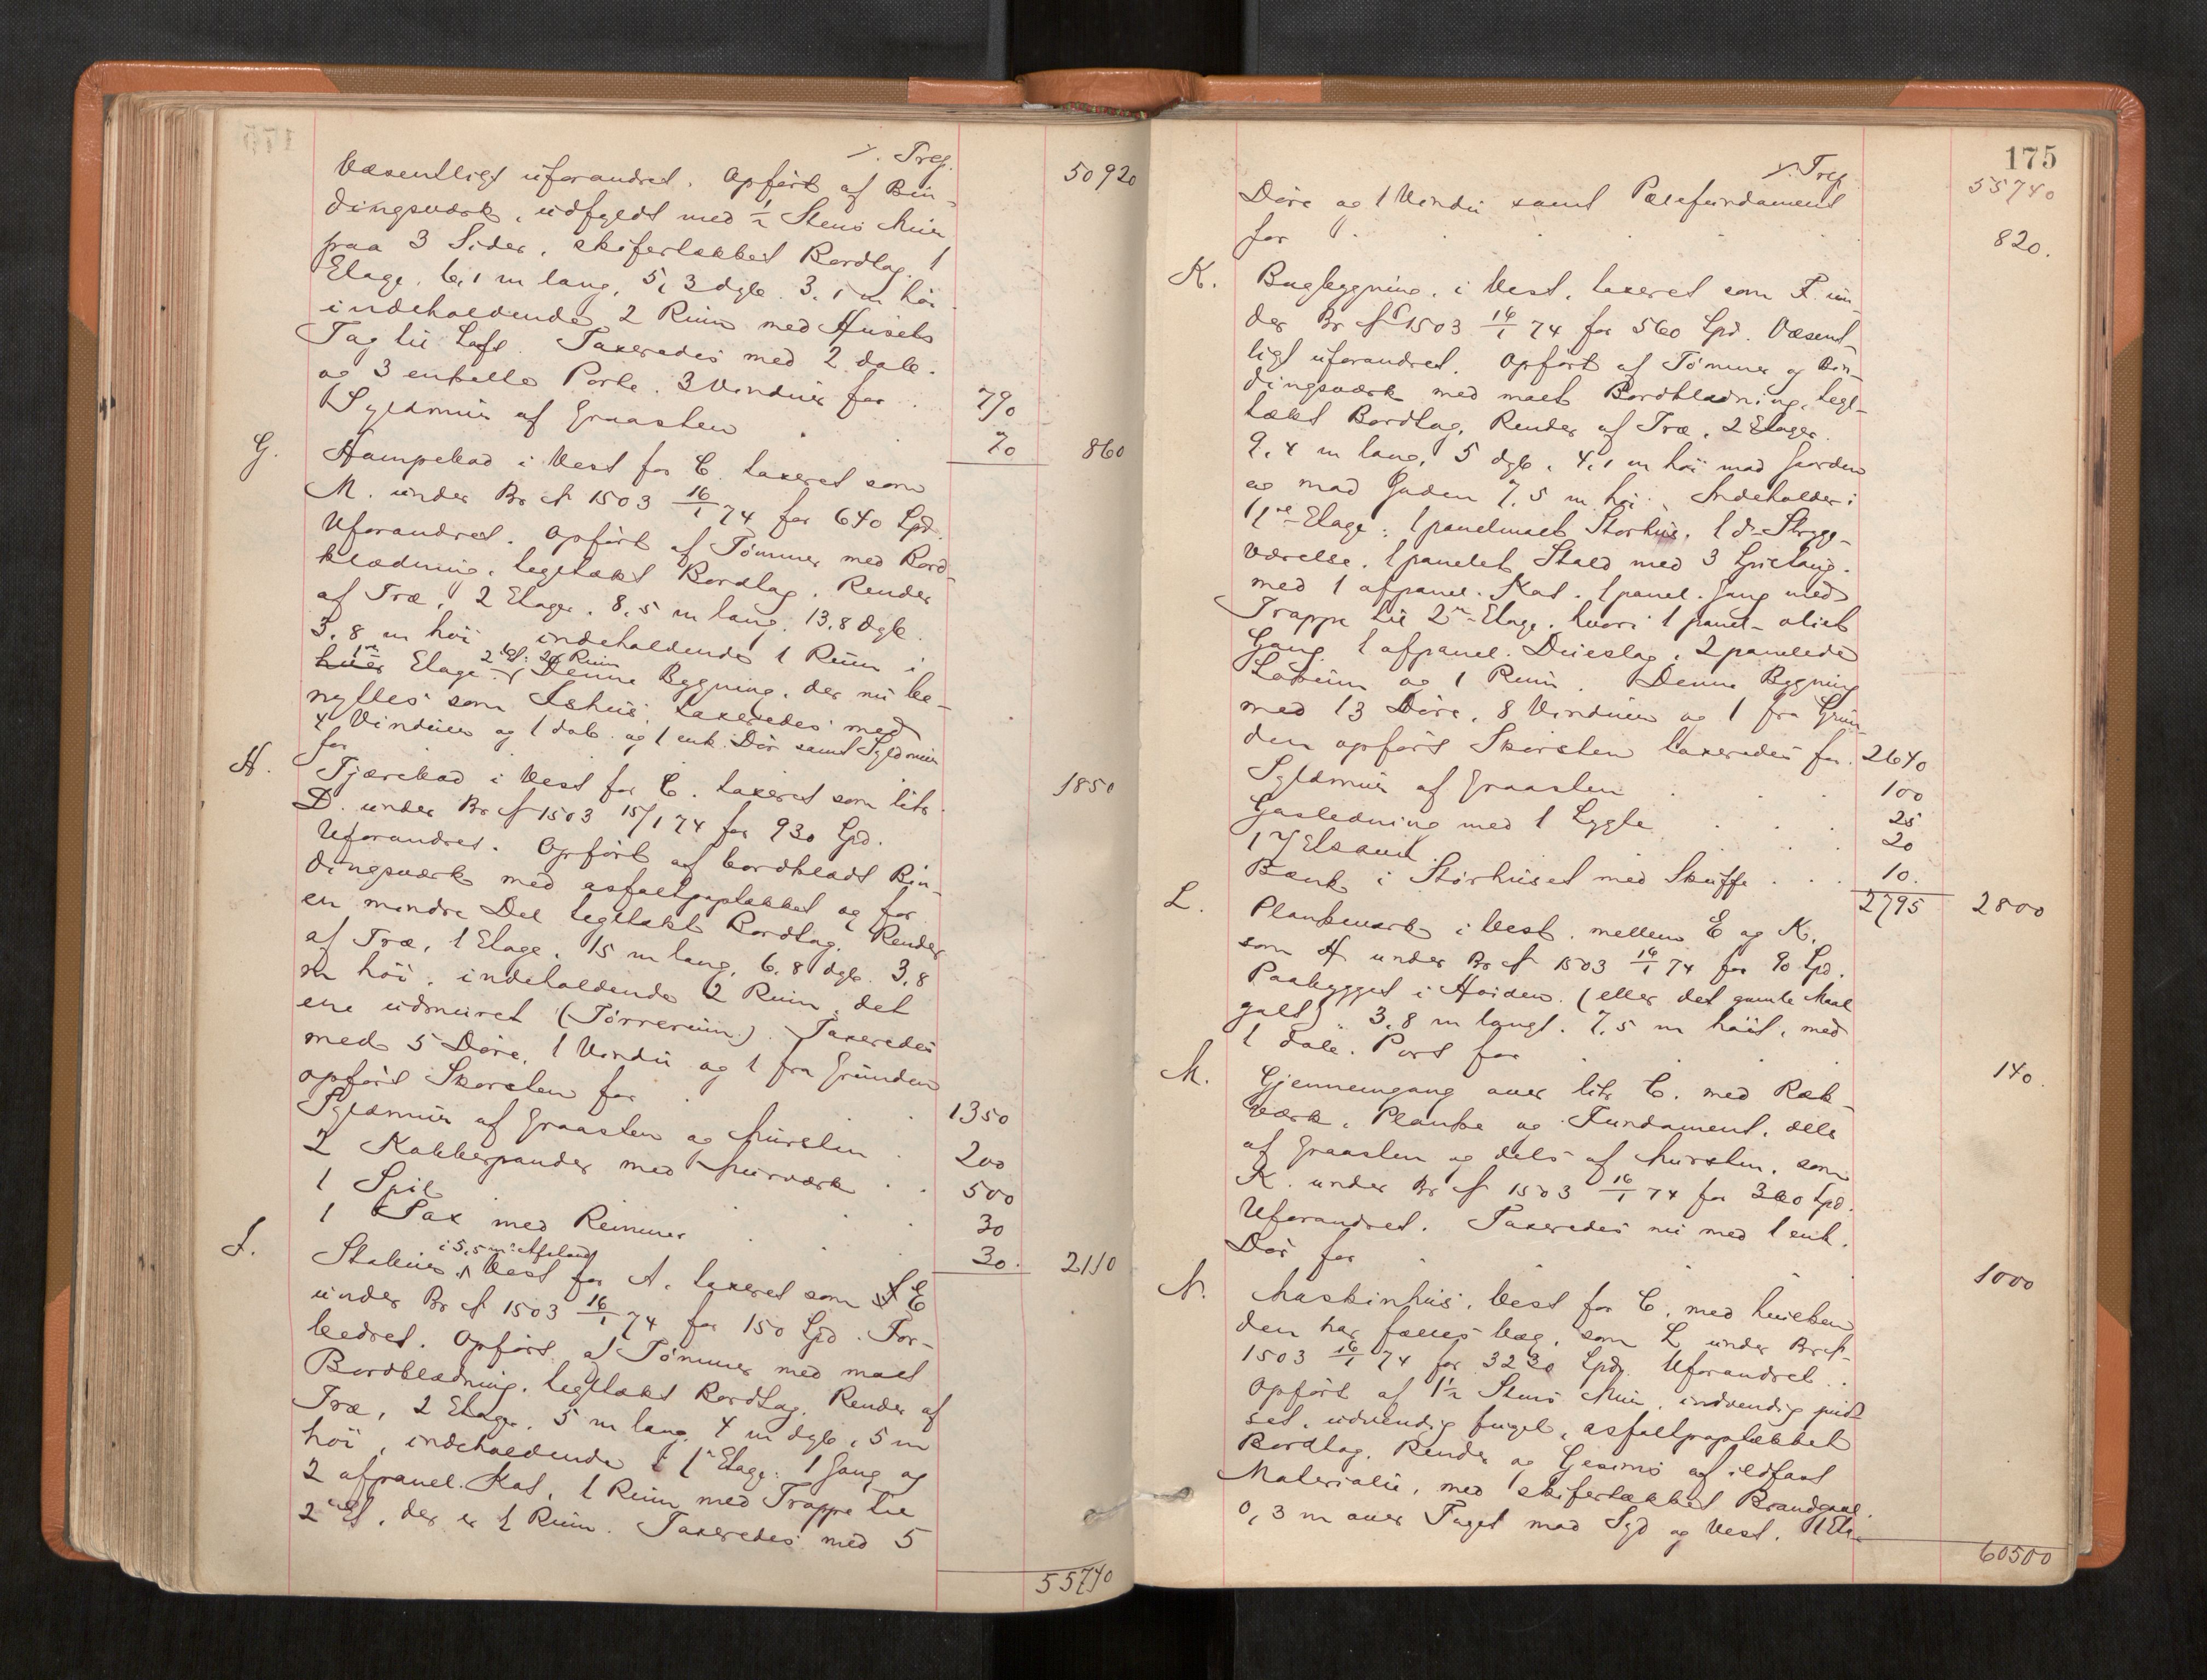 Trsp. 50920
Væsentligt uforandret. Opført af Bin-
dingsværk, udfyldt med ½ Stens Mur
paa 3 Sider, skifertækket Bordtag. 1
Etage, 6,1 m lang, 5,3 dyb. 3,1 m høi
indeholdende 2 Rum med Husets
Tag til Loft. Taxeredes med 2 dob.
og 3 enkelte Porte. 3 Vinduer for . 790
Syldmur af Graasten . . 70 860
G. Hampebod i Vest for C. taxeret som
M. under Br № 1503 16/1 74 for 640 Spd.
Uforandret. Opført af Tømmer med Bord-
klædning, tegltækt Bordtag. Render
af Træ, 2 Etager. 8,5 m lang. 13,8 dyb.
3,8 m høi, indeholdende 1 Rum i
1ste Etage. 2 Et: 2 Rum Denne Bygning, der nu be-
nyttes som Ishus, taxeredes med
4 Vinduer og 1 dob. og 1 enk. Dør samt Syldmur
for 1850
H. Tjærebod i Vest for C. taxeret som litr.
D. under Br № 1503 15/1 74 for 930 Spd.
Uforandret. Opført af bordklædt Bin-
dingsværk med asfaltpaptækket og for
en mindre Del tegltækt Bordtag. Render
af Træ, 1 Etage, 15 m lang, 6,8 dyb. 3,8
m høi, indeholdende 2 Rum, det
ene udmuret (Tørrerum). Taxeredes
med 5 Døre, 1 Vindu og 1 fra Grunden
opført Skorsten for . . 1350
Syldmur af Graasten og Mursten . 200
2 Kobberpander med Murværk . . 500
1 Spil . . . 30
1 Sax med Remmer . . . 30. 2110
J. Stabur i 5,5 m Afstand Vest for A. taxeret som E
under Br № 1503 16/1 74 for 150 Spd. For-
bedret. Opført af Tømmer med malt
Bordklædning, tegltækt Bordtag. Render af
Træ, 2 Etager. 5 m lang, 4 m dyb, 5 m
høi, indeholdende i 1ste Etage: 1 Gang og
2 afpanel. Kot, 1 Rum med Trappe til
2den Et, der er 1 Rum. Taxeredes med 5
55740
175
Trsp. 55740
Døre og 1 Vindu samt Pælefundament
for . . . . . 820.
K. Bagbygning, i Vest, taxeret som F. un-
der Br № 1503 16/1 74 for 560 Spd. Væsent-
ligt uforandret. Opført af Tømmer og Bin-
dingsværk med malt Bordklædning, tegl-
tækt Bordtag, Render af Træ, 2 Etager.
9,4 m lang, 5 dyb, 4,1 m høi mod Gaarden
og mod Gaden 7,5 m høi. Indeholder i
1ste Etage: 1 panelmalt Storhus, 1 do Stryge-
værelse, 1 panelet Stald med 3 Spiltaug.
med 1 afpanel. Kot. 1 panel. Gang med
Trappe til 2den Etage, hvori 1 panel-oliet
Gang. 1 afpanel. Dueslag, 2 panelede
Loftrum og 1 Rum. Denne Bygning
med 13 Døre, 8 Vinduer og 1 fra Grun-
den opført Skorsten taxeredes for. 2640
Syldmur af Graasten . . . 100
Gasledning med 1 Lygte . . . 25
1 Elsaml. . . . 20
Bænk i Storhuset med Skuffe . . . 10.
2795 2800
L. Plankeværk i Vest, mellem E og K.
som H under Br № 1503 16/1 74 for 90 Spd.
Paabygget i Høiden. (eller det gamle Maal
galt) 3,8 m langt. 7,5 m høit, med
1 dob. Port for . . . . 140.
M. Gjennemgang over litr C. med Ræk-
værk, Planke og Fundament, dels
af Graasten og dels af Mursten, som
K. under Br № 1503 16/1 74 for 360 Spd.
Uforandret. Taxeredes nu med 1 enk.
Dør for . . . . 1000
N. Maskinhus, Vest for C, med hvilken
den har fælles Væg, som L under Br №
1503 16/1 74 for 3230 Spd. Uforandret.
Opført af 1½ Stens Mur, indvendig pud-
set, udvendig fuget, asfaltpaptækket
Bordtag. Render og Gesims af ildfast
Materiale, med skifertækket Brandgavl
0,3 m over Taget mod Syd og Vest. 1 Eta-
60500